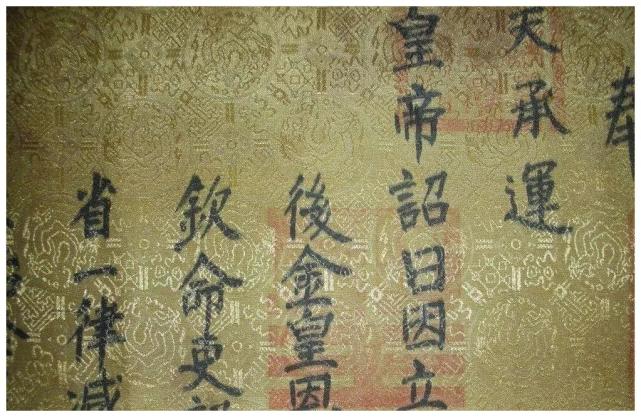 奉
天承運
皇帝詔曰因立
後金皇因
欽命吏部
省一律減